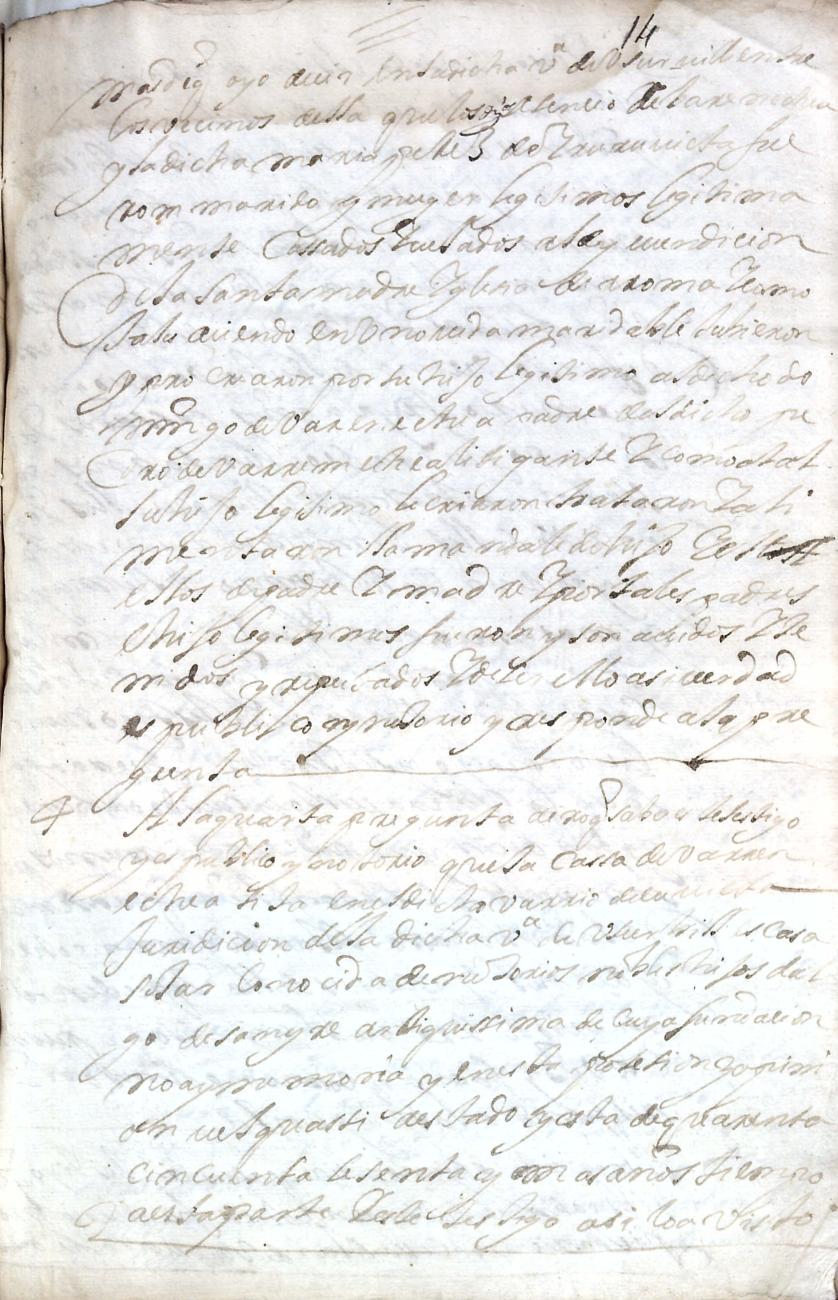 14
mas dijo oyo decir en la dicha va de Usurvill entre
los vecinos della que los dichos de Varrenechea
y la dicha maria de Yruruvieta fue
ron marido y muger legitimos legitima
mente cassados velados a ley e vendicion
de la santa madre Yglesia de rroma y como
tales aviendo en uno vida maridable tubieron
y procrearon por su hijo legitimo al dicho do
mingo de Varenechea padre del dicho pe
dro de Varrenechea litigante y como a tal
su hijo legitimo le criaron trataron y ali
mentaron llamandole de hijo y el
ellos de padre y madre y por tales padres
e hijo legitimos fueron y son avidos y te
nidos y reputados y dello asi verdad
es publico y notorio y responde a la pre
gunta
4 A la quarta pregunta dixo que save este testigo
y es publico y notorio que la cassa de Varren
echea sita en el dicho varrio de
Juridicion de la dicha va de Usurvill es casa
solar conocida de notorios nobles hijos dal
go de sangre antiquissima de cuya fundacion
no ay memoria y en esta posesion y opini
on vel quassi a estado y esta de quarenta
cincuenta sesenta y mas años tiempo
a esta parte y este testigo asi lo a visto